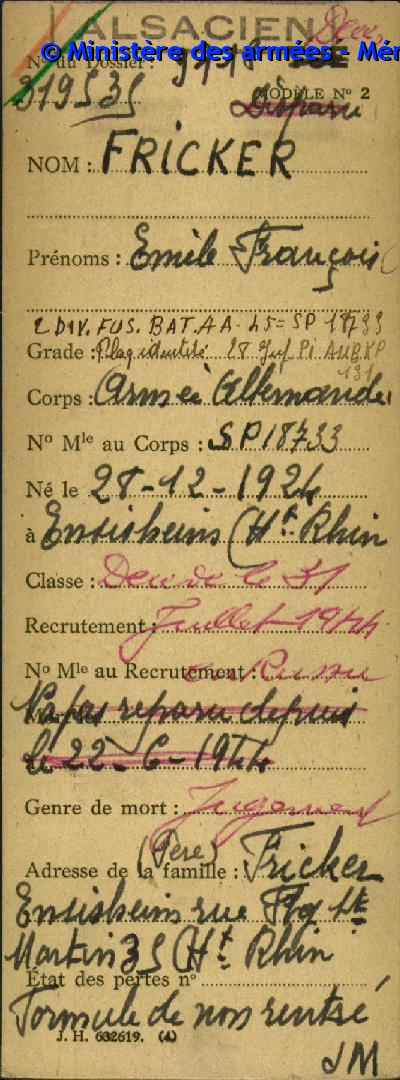 ALSACIEN
Décès
© Ministère des armées - Mém
N° du Dossier :
319535
MODÈLE N° 2
Disparu
NOM : FRICKER
Prénoms : Emile François
2 DIV. FUS. BAT. A A - L5 = SP 18733
Grade : Plaq identité 28 Inf Pi AUBKP
131
Corps : Armée Allemande
N° Mle au Corps : SP18733
Né le 28-12-1924
à Ensisheim (Ht Rhin
Classe : Décédé le 31
Recrutement : Juillet 1944
N° Mle au Recrutement : en Russie
N'a pas reparu depuis
le 22-6-1944
Genre de mort : Jugement
(Père)
Adresse de la famille : Fricker
Ensisheim rue Fbg St
Martin 35 (Ht Rhin
État des pertes n°
Formule de non rentré
J. H. 632619. (4)
JM